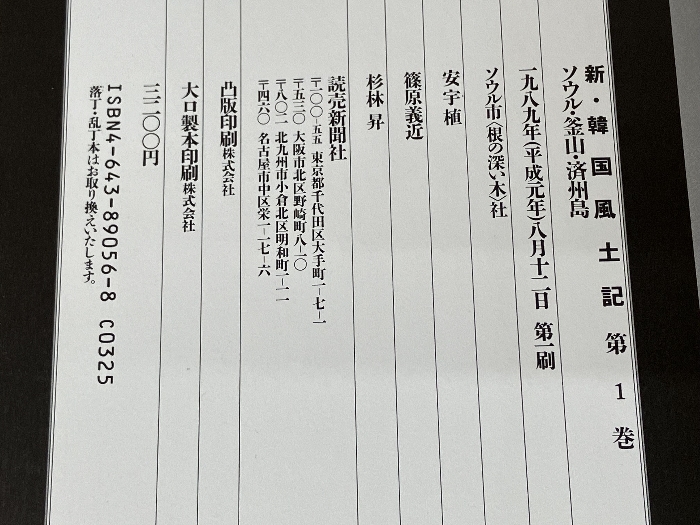 新・韓国風土記 第1巻
ソウル・釜山・済州島
一九八九年(平成元年)八月十二日 第一刷
ソウル市〈根の深い木〉社
安宇植
篠原義近
杉林 昇
読売新聞社
〒一〇〇-五五 東京都千代田区大手町一-七-一
〒五三〇 大阪市北区野崎町八-一〇
〒八〇二 北九州市小倉北区明和町一-一一
〒四六〇 名古屋市中区栄一-一七-六
凸版印刷株式会社
大口製本印刷株式会社
三二〇〇円
ISBN4-643-89056-8 C0325
落丁・乱丁本はお取り換えいたします。